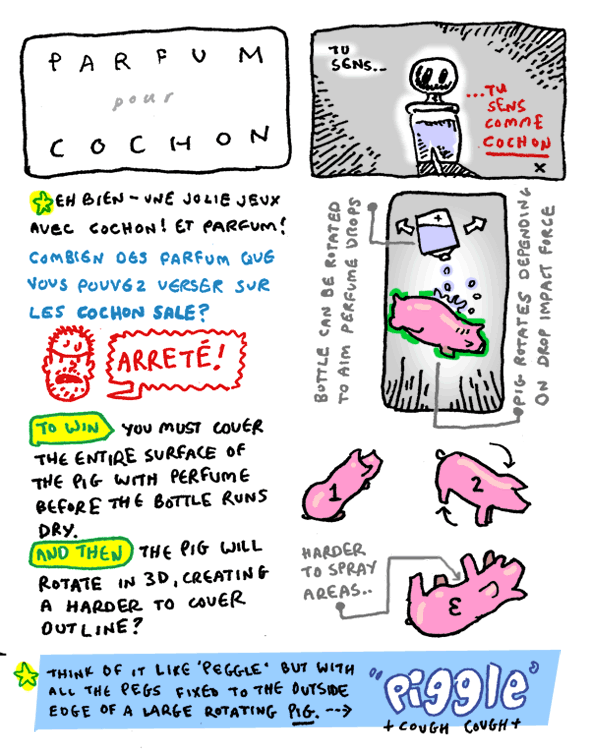 PARFUM
pour
COCHON
TU
SENS..
...TU
SENS
COMME
COCHON
X
EH BIEN - UNE JOLIE JEUX
AVEC COCHON! ET PARFUM!
COMBIEN DES PARFUM QUE
VOUS POUVEZ VERSER SUR
LES COCHON SALE?
ARRETÉ!
BOTTLE CAN BE ROTATED
TO AIM PERFUME DROPS
+
PIG ROTATES DEPENDING
ON DROP IMPACT FORCE
TO WIN YOU MUST COVER
THE ENTIRE SURFACE OF
THE PIG WITH PERFUME
BEFORE THE BOTTLE RUNS
DRY.
AND THEN THE PIG WILL
ROTATE IN 3D, CREATING
A HARDER TO COVER
OUTLINE?
1
2
HARDER
TO SPRAY
AREAS..
3
THINK OF IT LIKE 'PEGGLE' BUT WITH
ALL THE PEGS FIXED TO THE OUTSIDE
EDGE OF A LARGE ROTATING PIG. -->
"Piggle"
+COUGH COUGH+